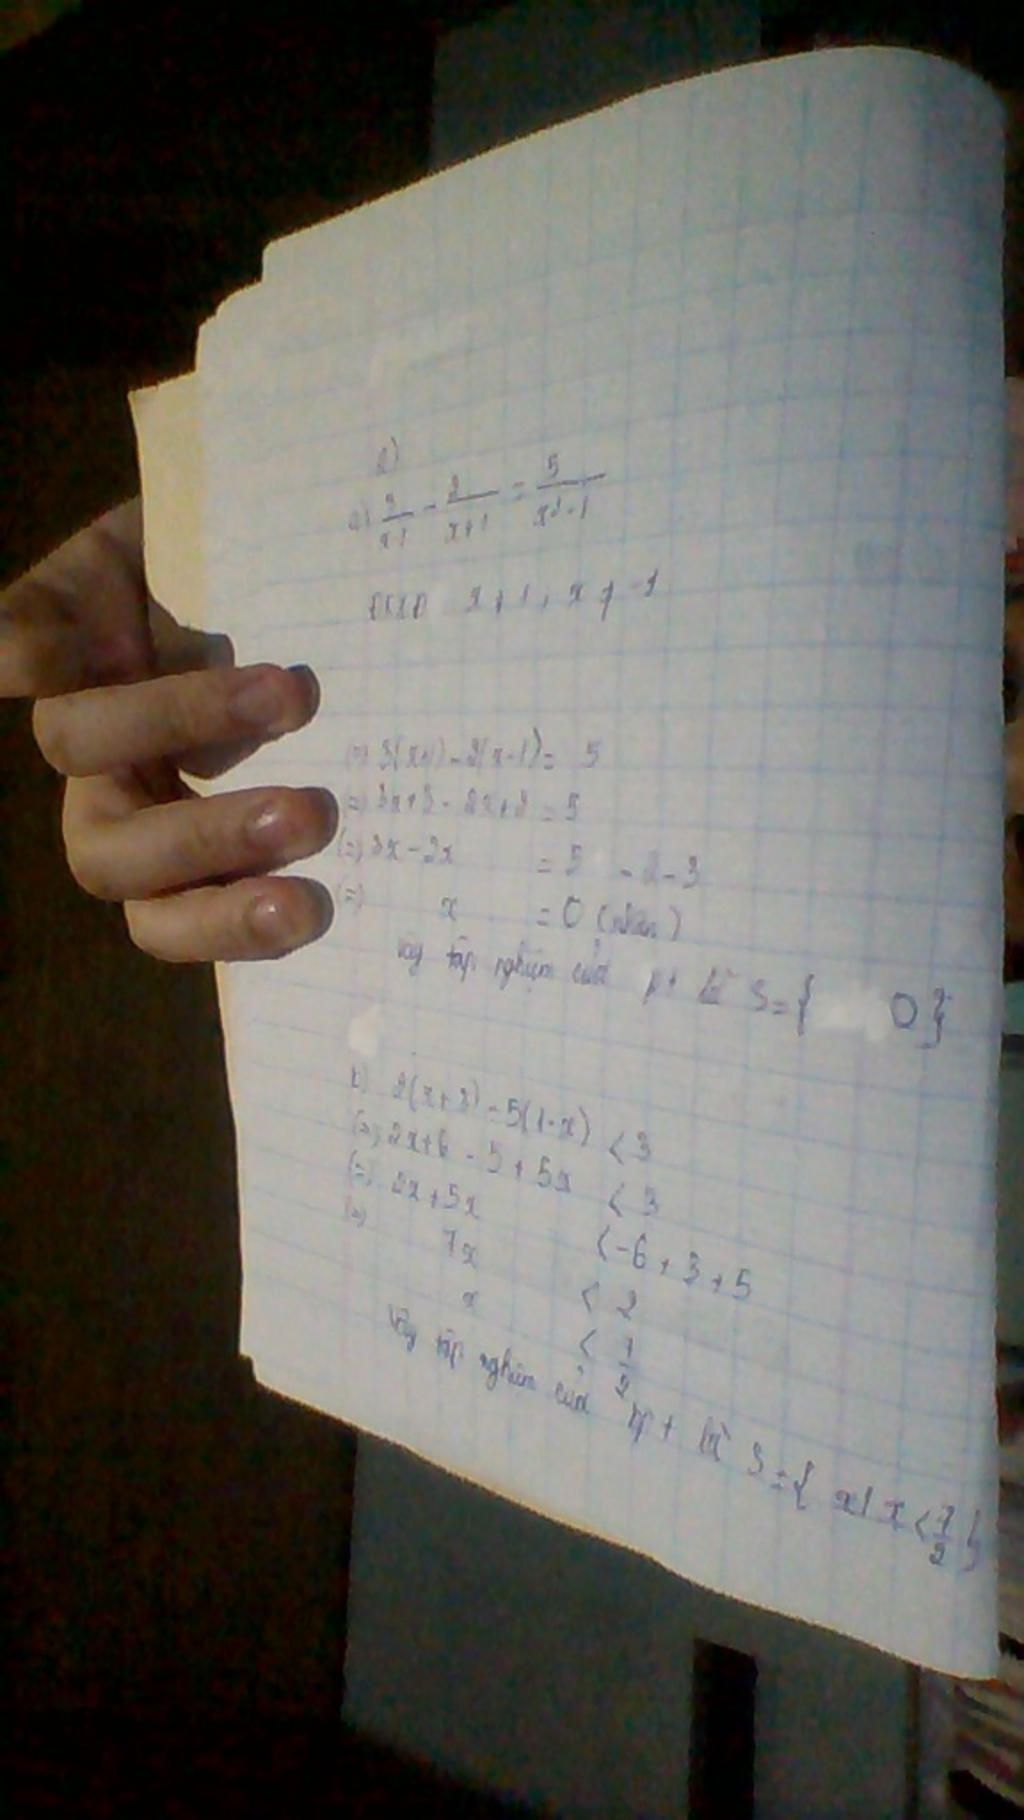 2)
a) 3/x-1 - 2/x+1 = 5/x²-1
ĐKXĐ x ≠ 1, x ≠ -1
(=) 3(x+1) - 2(x-1) = 5
(=) 3x+3 - 2x+2 = 5
(=) 3x - 2x = 5 - 2 - 3
(=) x = 0 (nhận)
Vậy tập nghiệm của pt là S = { 0 }
2(x+3) - 5(1-x) < 3
(=) 2x+6 - 5 + 5x < 3
(=) 2x + 5x < -6 + 3 + 5
(=) 7x < 2
x < 7/2
Vậy tập nghiệm của bpt là S = { x | x < 7/2 }